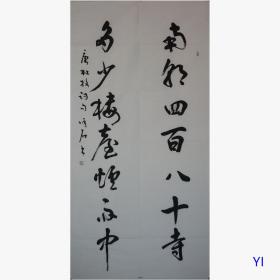 南朝四百八十寺
多少楼臺烟雨中
唐杜牧詩句
YI